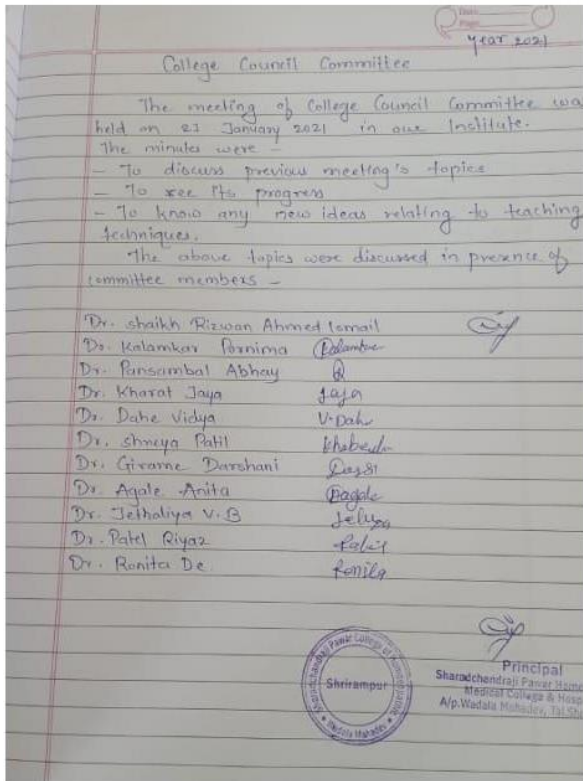 Date
Page
Year 2021
College Council Committee
The meeting of College Council Committee wa
held on 23 January 2021 in our Institute.
The minutes were -
- To discuss previous meeting's topics
- To see its progress
- To know any new ideas relating to teaching
techniques.
The above topics were discussed in presence of
committee members -
Dr. Shaikh Rizwan Ahmed Ismail
Dr. Kalamkar Pornima
Dr. Pansambal Abhay
Dr. Kharat Jaya Jaya
Dr. Dahe Vidya V. Dahe
Dr. Shneya Patil
Dr. Girame Darshani
Dr. Agale Anita
Dr. Jethaliya V. B
Dr. Patel Riyaz
Dr. Ronita De. Ronita
Sharadchandraji Pawar College of Homoeopathic
Shrirampur
Wadala Mahadev
Principal
Sharadchandraji Pawar Home
Medical College & Hosp
A/p.Wadala Mahadev, Tal.Sh